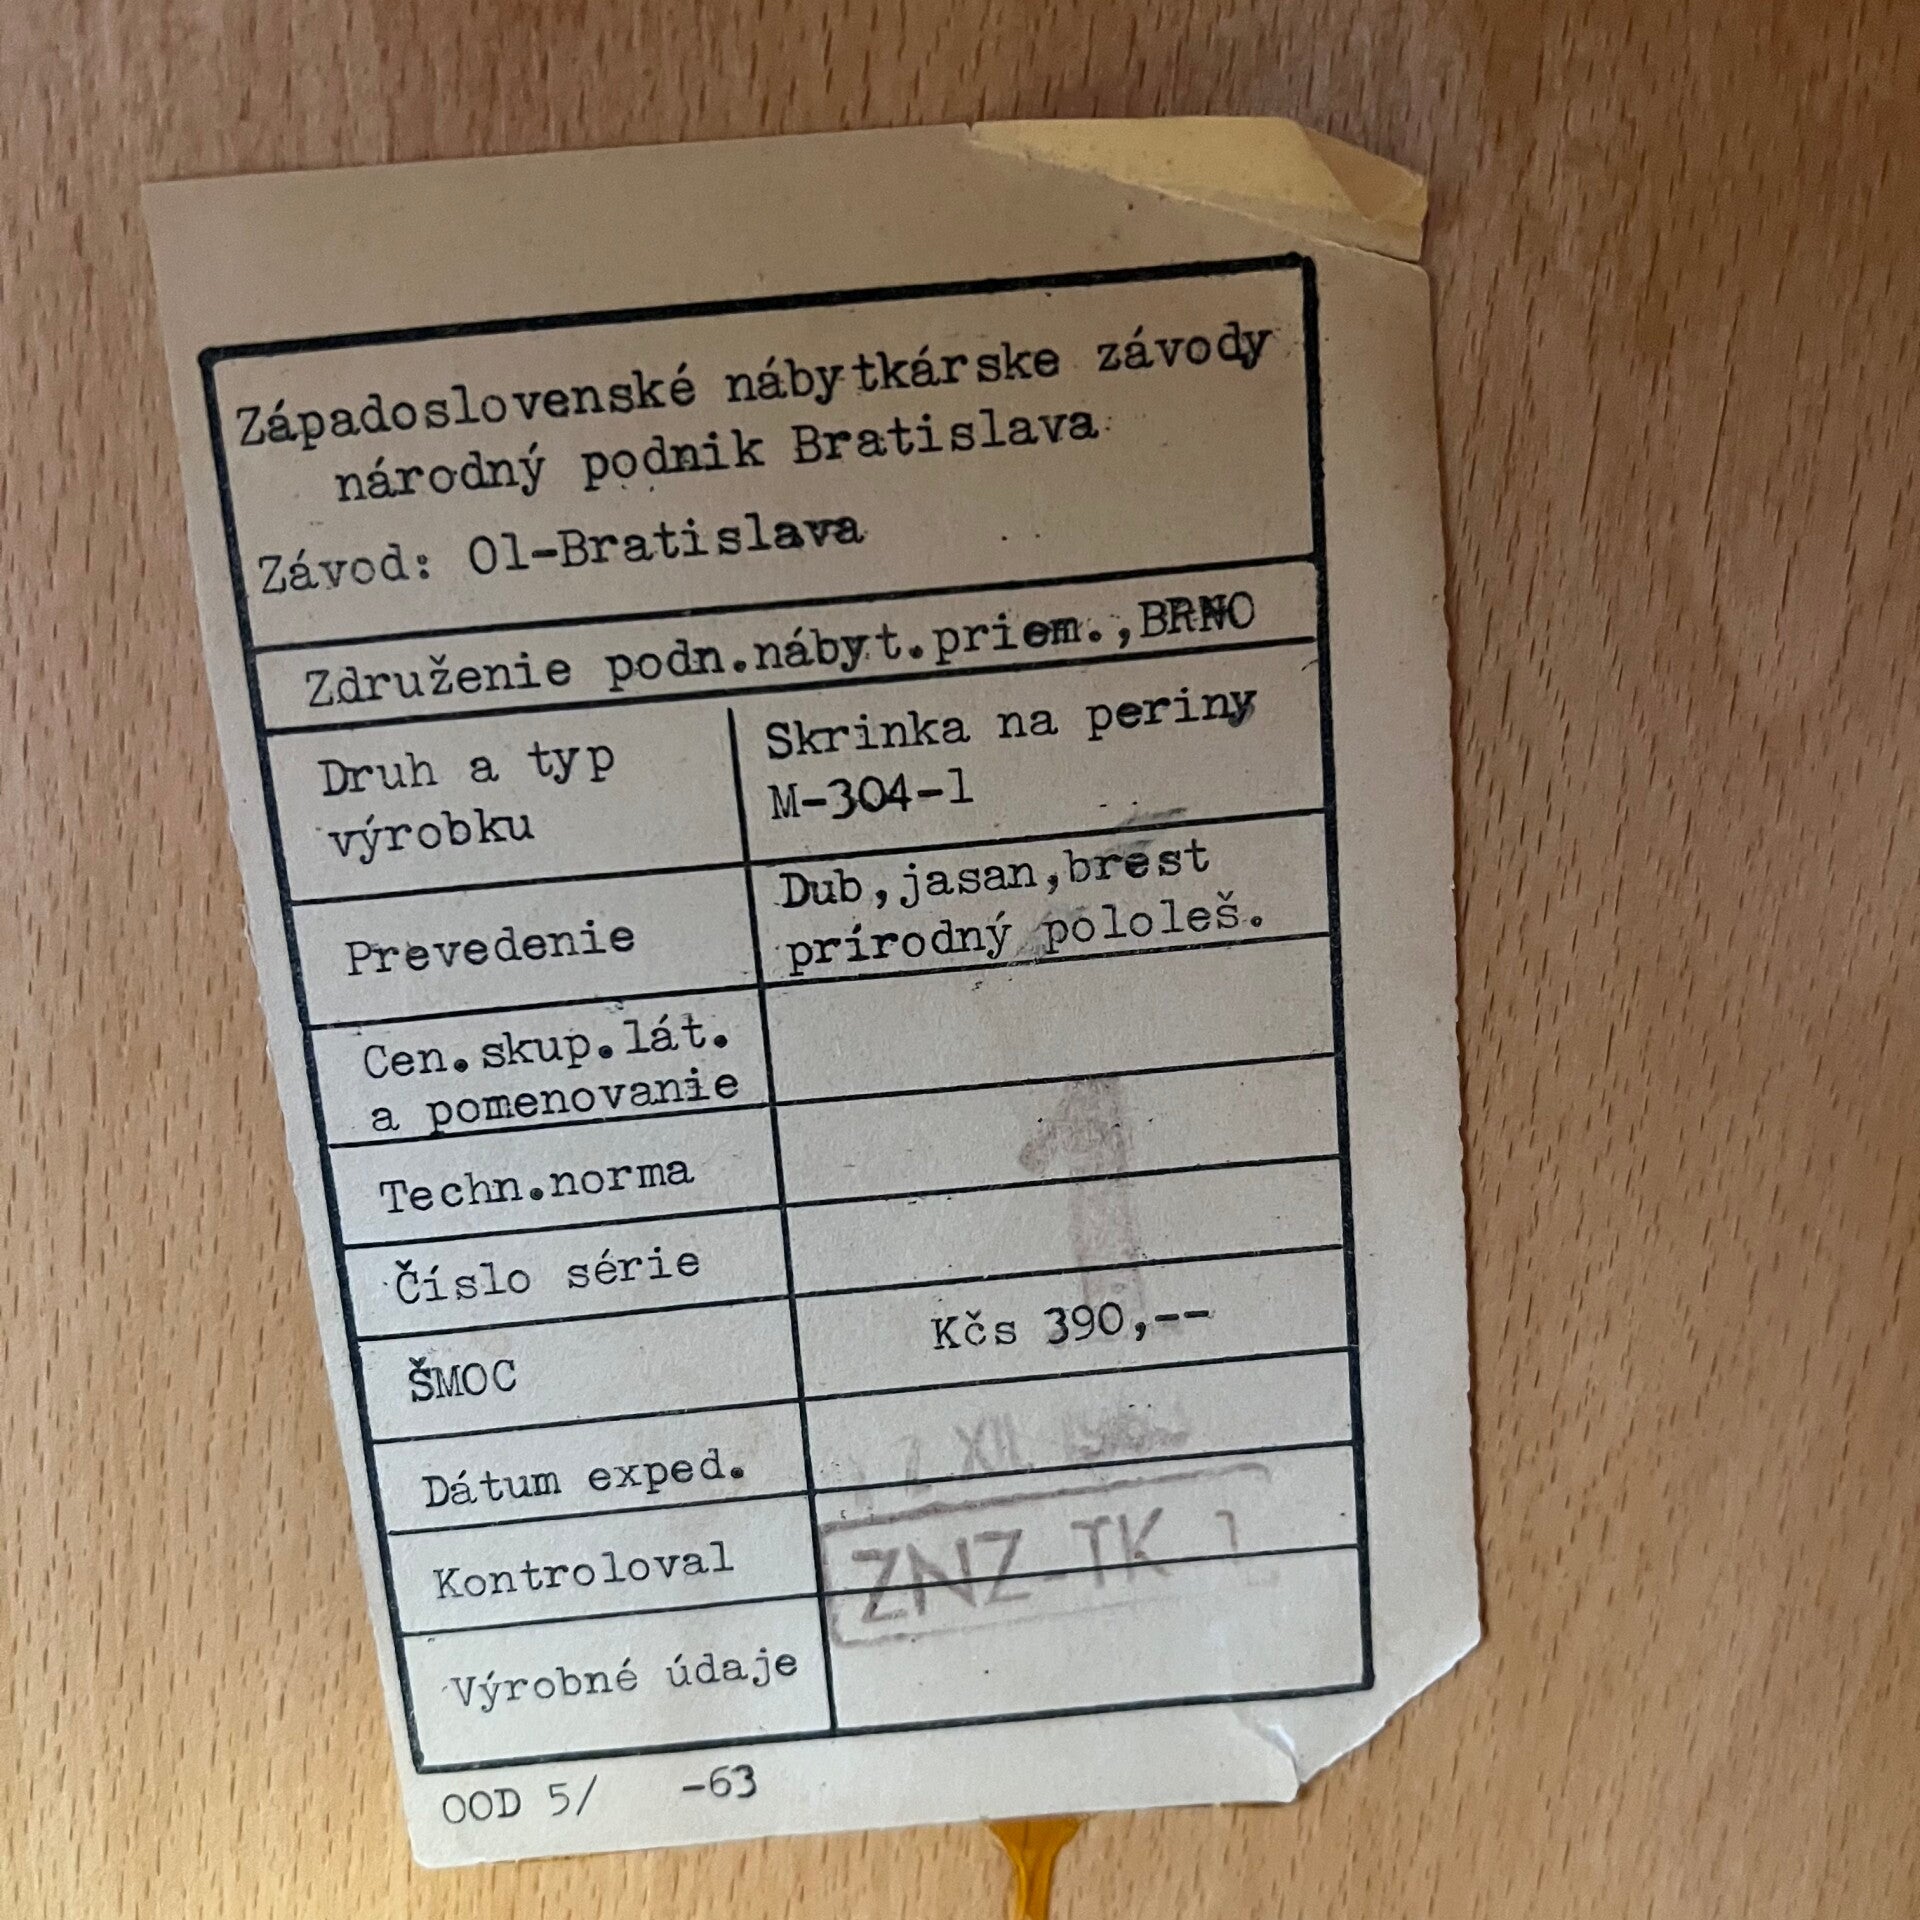 Západoslovenské nábytkárske závody
národný podnik Bratislava
Závod: 01-Bratislava
Združenie podn.nábyt.priem.,BRNO
Druh a typ výrobku
Skrinka na periny
M-304-1
Prevedenie
Dub,jasan,brest
prírodný pololeš.
Cen.skup.lát.
a pomenovanie
Techn.norma
1
Číslo série
ŠMOC
Kčs 390,--
Dátum exped.
XII
Kontroloval
ZNZ-TK 1
Výrobné údaje
OOD 5/ -63